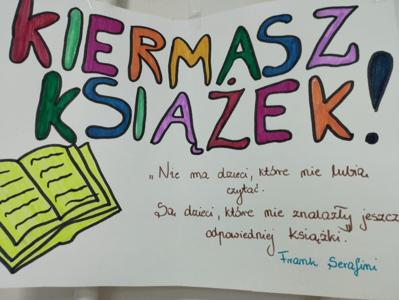 KIERMASZ
KSIĄŻEK!
„Nie ma dzieci, które nie lubią
czytać.
Są dzieci, które nie znalazły jeszcz
odpowiedniej książki.
Frank Serafini